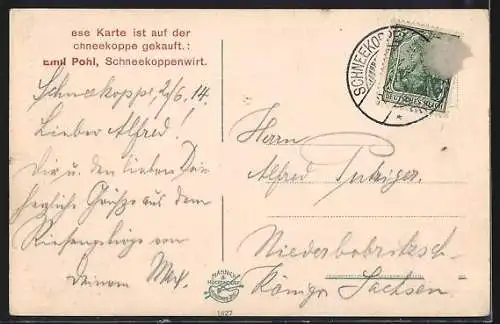 ese Karte ist auf der
chneekoppe gekauft.:
Emil Pohl, Schneekoppenwirt.
Schneekoppe, 2/6. 14.
Lieber Alfred!
Dir u. den lieben
herzliche Grüße aus dem
Riesengebirge von
Deinem
SCHNEEKOPP
DEUTSCHES REICH
Herrn
Alfred
Niederbobritzsch
Königr. Sachsen.
1827